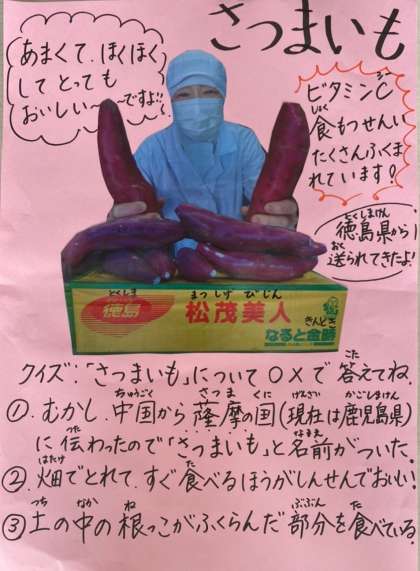 さつまいも
あまくて、ほくほく
してとっても
おいしい〜〜ですよ!!
ビタミンC
食もつせんい
たくさんふくま
れています!
徳島県から
送られてきたよ!
徳島
松茂美人
なると金時
クイズ:「さつまいも」について○×で答えてね
①.むかし、中国から薩摩の国(現在は鹿児島県)
に伝わったので「さつまいも」と名前がついた.
②.畑でとれて、すぐ食べるほうがしんせんでおいしい!
③土の中の根っこがふくらんだ部分を食べている.